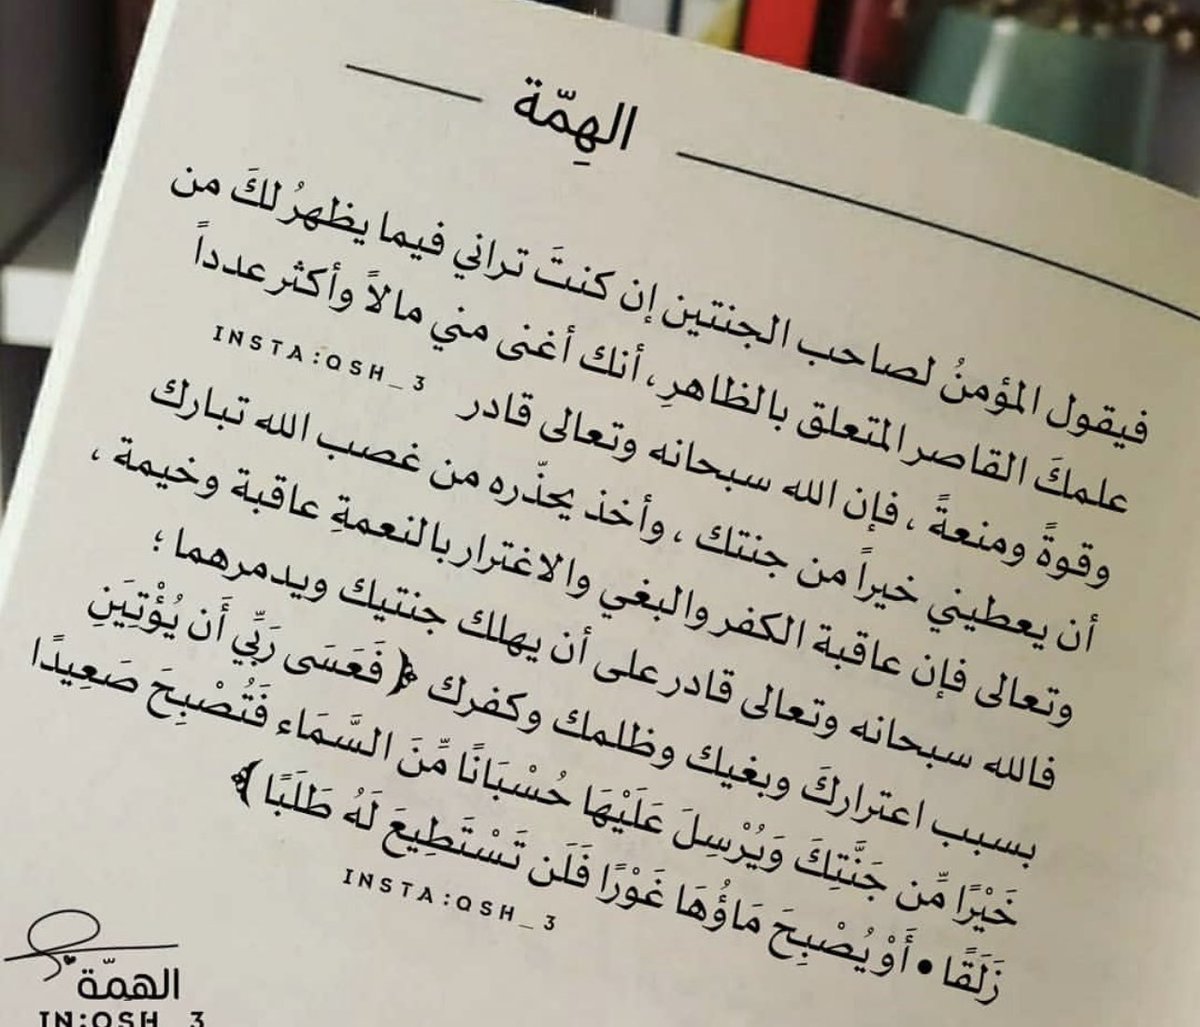 الهِمّة
فيقول المؤمنُ لصاحب الجنتين إن كنتَ تراني فيما يظهرُ لكَ من
علمكَ القاصر المتعلق بالظاهرِ، أنك أغنى مني مالاً وأكثر عدداً
وقوةً ومنعةً ، فإن الله سبحانه وتعالى قادر
INSTA:QSH_3
أن يعطيني خيراً من جنتك ، وأخذ يحذّره من غصب الله تبارك
وتعالى فإن عاقبة الكفر والبغي والاغترار بالنعمةِ عاقبة وخيمة ،
فالله سبحانه وتعالى قادر على أن يهلك جنتيك ويدمرهما ؛
بسبب اعتراركَ وبغيك وظلمك وكفرك ﴿ فَعَسَى رَبِّي أَن يُؤْتِيَنِ
خَيْرًا مِّن جَنَّتِكَ وَيُرْسِلَ عَلَيْهَا حُسْبَانًا مِّنَ السَّمَاء فَتُصْبِحَ صَعِيدًا
زَلَقًا • أَوْ يُصْبِحَ مَاؤُهَا غَوْرًا فَلَن تَسْتَطِيعَ لَهُ طَلَبًا ﴾
INSTA:QSH_3
الهمّة
IN:QSH_3